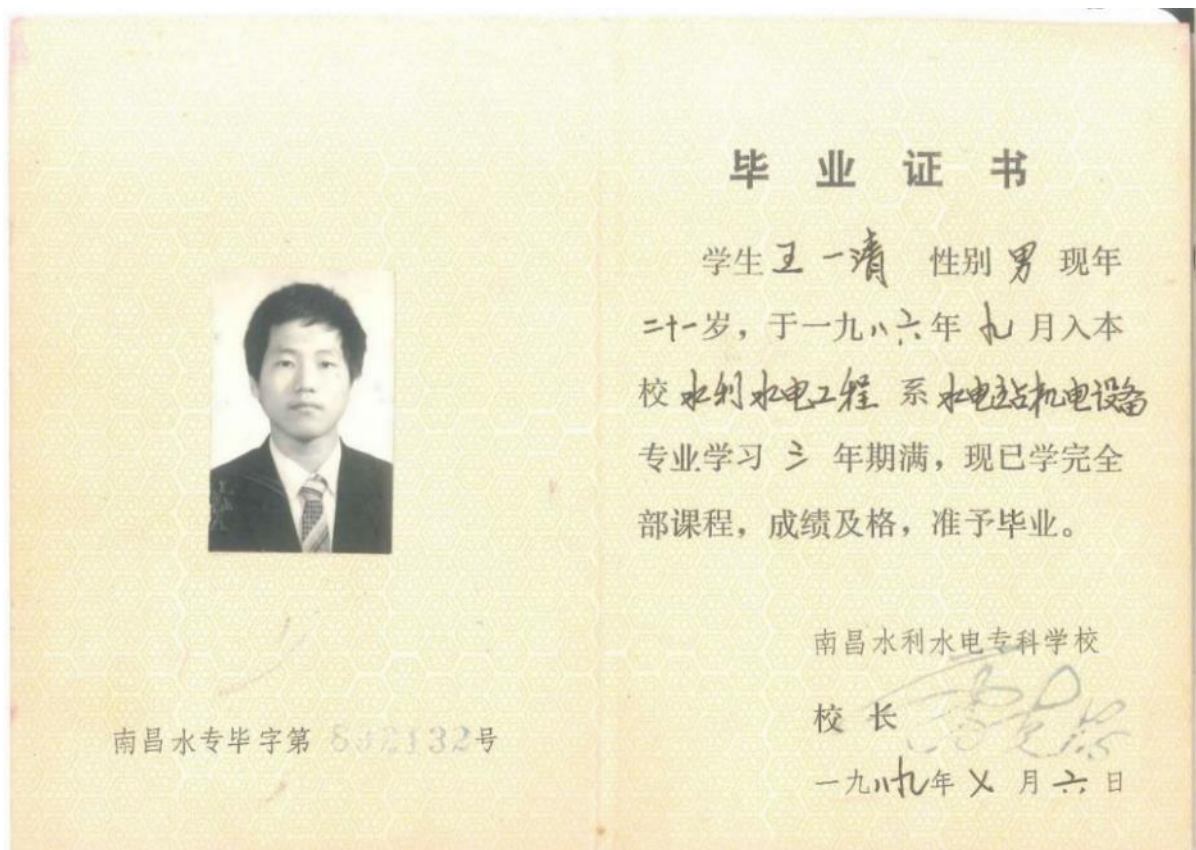 毕业证书
学生王一清 性别男 现年
二十一岁，于一九八六年九月入本
校水利水电工程系水电站机电设备
专业学习三年期满，现已学完全
部课程，成绩及格，准予毕业。
南昌水利水电专科学校
校长
一九八九年 月六日
南昌水专毕字第892132号